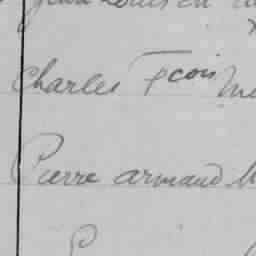 Jean Louis
Charles Fcois
Pierre armand